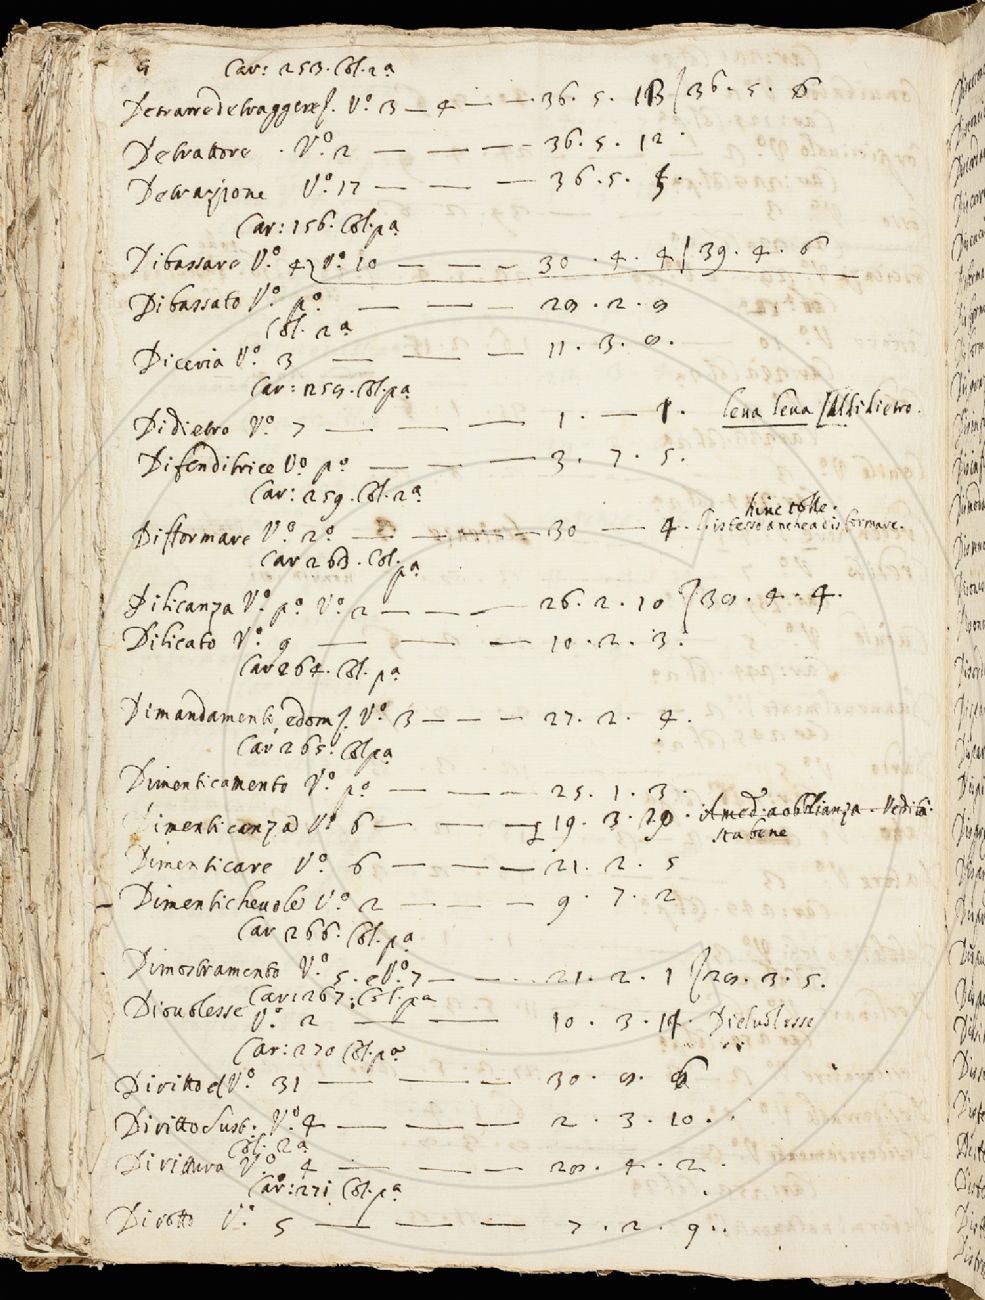 Car: 253. Col. 2a
Detrarre detraggere. Vo 3 — 4 — — 36. 5. 13 / 36. 5. 6
Detrattore. Vo. 2 — — — 36. 5. 12.
Detrazione Vo. 17 — — — 36. 5.
Car: 256. Col. pa
Dibassare Vo. 4 Vo. 10 — — — 30. 4. 4 / 39. 4. 6
Dibassato Vo. po. — — — 29. 2. 9
Col. 2a
Diceria Vo. 3 — — — 11. 3. 9.
Car: 259. Col. pa
Didietro Vo. 7 — — — 1. — 1. leva leva / Alli dietro.
Difenditrice Vo. po — — 3. 7. 5.
Car: 259. Col. 2a
hinc tolle.
Difformare Vo. 2o — — — 30 — 4. listesso anche a disformare.
Car 263. Col. pa
Dilicanza Vo. po Vo. 2 — — 26. 2. 10 / 39. 4. 4.
Dilicato Vo. 9 — — — 10. 2. 3.
Car 264. Col. pa
Dimandamento e dom. Vo. 3 — — — 27. 2. 4.
Car 265. Col pa
Dimenticamento Vo. po — — — 25. 1. 3.
Dimenticanza Vo 6 — — — 19. 3. Amed. a obblianza. Vedi
sta bene
Dimenticare Vo 6 — — — 21. 2. 5
Dimentichevole Vo. 2 — — — 9. 7. 2
Car 266. Col. pa
Dimostramento Vo. 5. e Vo. 7 — — 21. 2. 1 / 29. 3. 5.
Car: 267. Col. pa
Dioublesse Vo. 2 — — — 10. 3. 14. Dieublesse
Car: 270 Col. pa
Diritto Vo. 31 — — — 30. 9. 6
Diritto Sust. Vo. 4 — — — 2. 3. 10.
Col. 2a
Dirittura Vo. 4 — — — 29. 4. 2.
Car: 271 Col. pa
Dirotto Vo. 5 — — — 7. 2. 9.